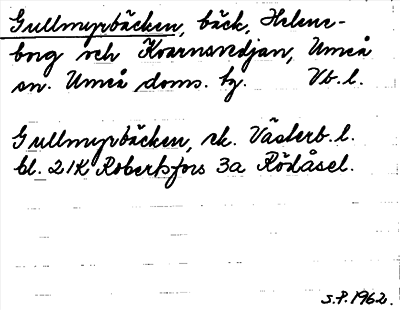 Gullmyrbäcken, bäck, Helene-
borg och Kvarnsvedjan, Umeå
sn. Umeå doms. hg. Vb. l.
Gullmyrbäcken, rk. Västerb. l.
bl. 21K Robertsfors 3a Rödåsel.
S.P. 1962.